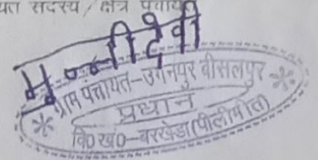 सदस्य / क्षेत्र पंचायत
मुन्नीदेवी
ग्राम पंचायत-उगनपुर बीसलपुर
प्रधान
वि0ख0-बरखेडा (पीलीभीत)